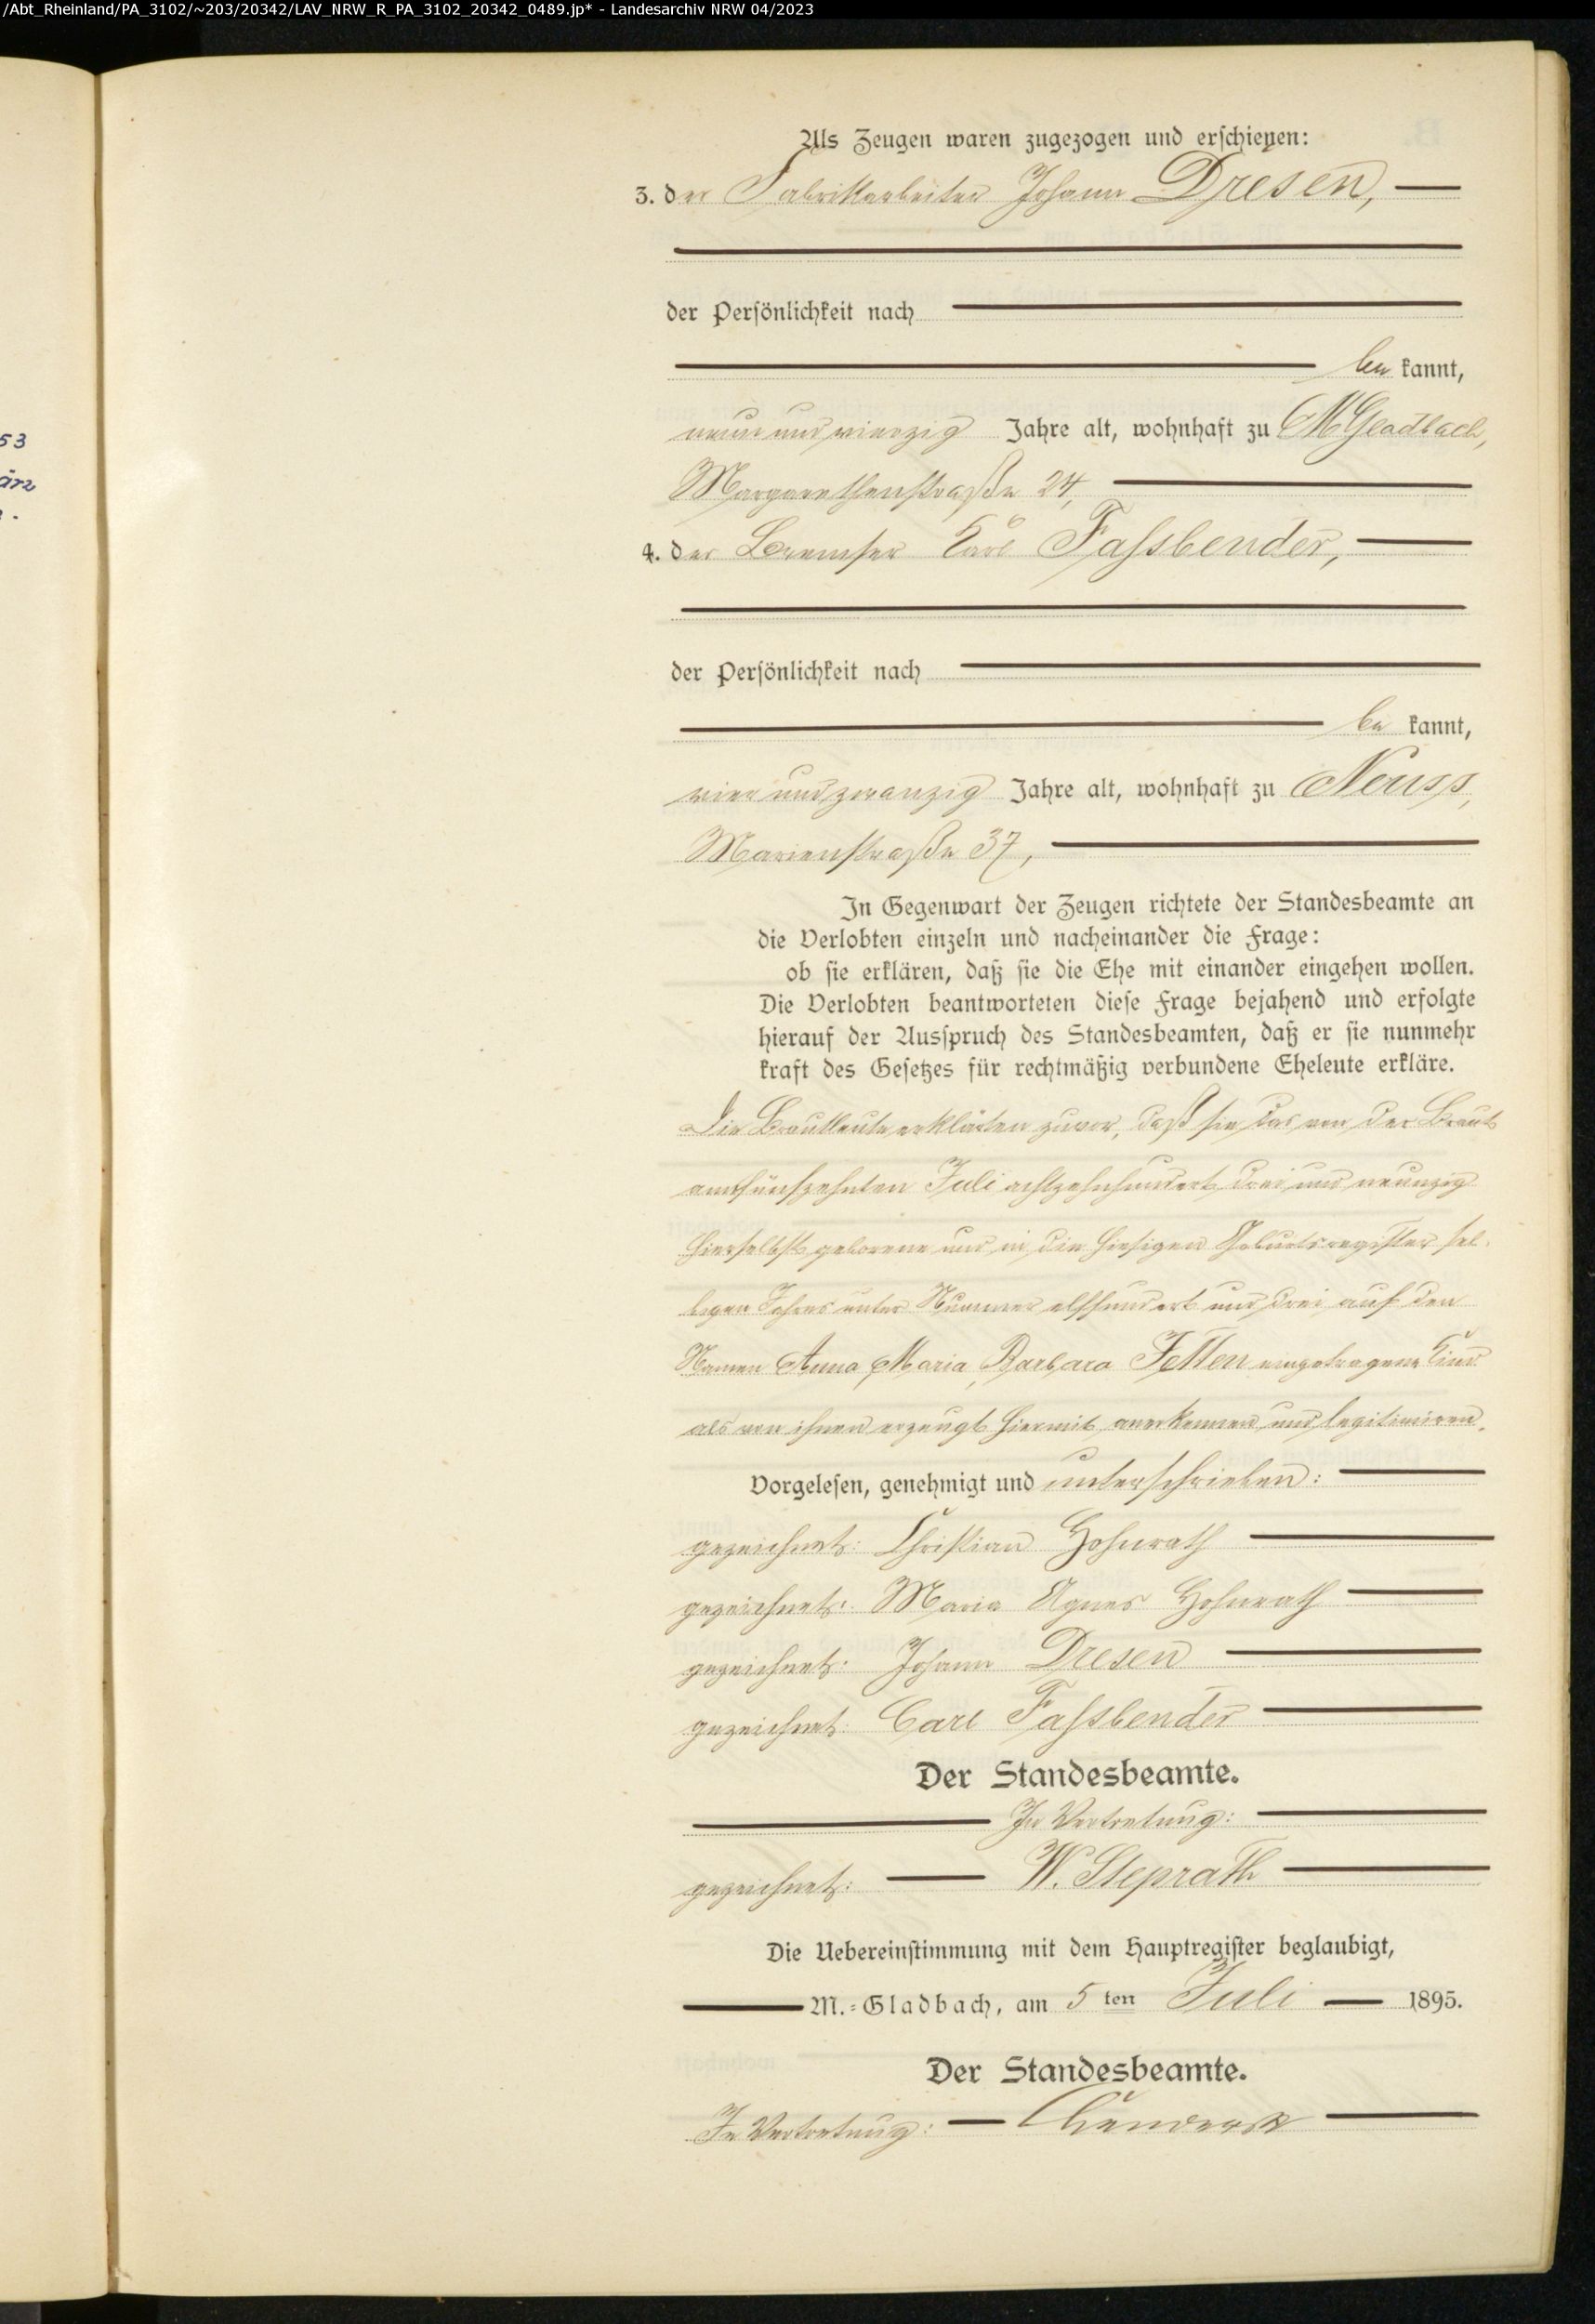 /Abt_Rheinland/PA_3102/~203/20342/LAV_NRW_R_PA_3102_20342_0489.jp* - Landesarchiv NRW 04/2023
53
ärz
Als Zeugen waren zugezogen und erschienen:
3. der Fabrikarbeiter Johann Dresen,
der Persönlichkeit nach
be kannt,
neun und vierzig Jahre alt, wohnhaft zu M Gladbach,
Margarethenstraße 24,
4. der Bremser Carl Fassbender,
der Persönlichkeit nach
be kannt,
vier und zwanzig Jahre alt, wohnhaft zu Neuss,
Marienstraße 37,
In Gegenwart der Zeugen richtete der Standesbeamte an
die Verlobten einzeln und nacheinander die Frage:
ob sie erklären, daß sie die Ehe mit einander eingehen wollen.
Die Verlobten beantworteten diese Frage bejahend und erfolgte
hierauf der Ausspruch des Standesbeamten, daß er sie nunmehr
kraft des Gesetzes für rechtmäßig verbundene Eheleute erkläre.
Die Brautleute erklärten zuvor, daß sie das von der Braut
am fünfzehnten Juli achtzehnhundert drei und neunzig
hierselbst geborene und in die hiesigen Geburtsregister sel-
bigen Jahres unter Nummer elfhundert und drei auf den
Namen Anna Maria Barbara Fetten eingetragene Kind
als von ihnen erzeugt hiermit anerkennen und legitimiren.
Vorgelesen, genehmigt und unterschrieben:
gezeichnet: Christian Hohnrath
gezeichnet: Maria Agnes Hohnrath
gezeichnet: Johann Dresen
gezeichnet: Carl Fassbender
Der Standesbeamte.
In Vertretung:
gezeichnet: W. Steprath
Die Uebereinstimmung mit dem Hauptregister beglaubigt,
M.-Gladbach, am 5 ten Juli 1895.
Der Standesbeamte.
In Vertretung: